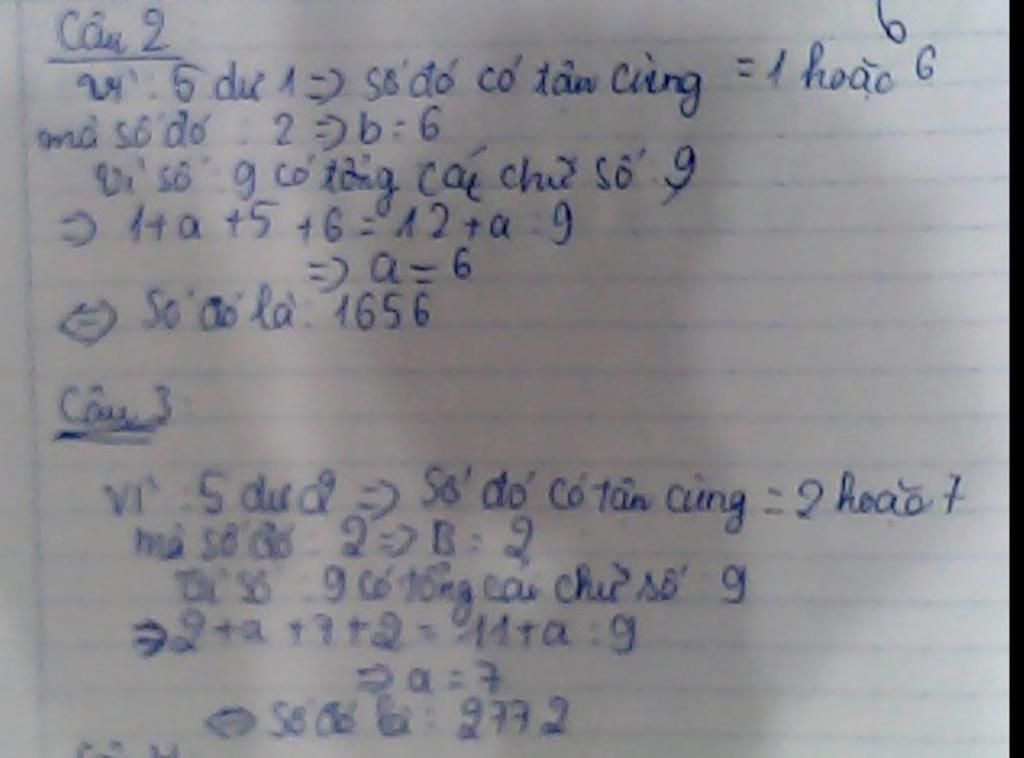 6
Câu 2
Vì : 5 dư 1 => số đó có tân cùng = 1 hoặc 6
mà số đó : 2 => b = 6
Vì số : 9 có tổng các chữ số : 9
=> 1+a +5 +6 = 12 +a : 9
=> a = 6
<=> Số đó là : 1656
Câu 3
Vì : 5 dư 2 => Số đó có tân cùng = 2 hoặc 7
mà số đó : 2 => B = 2
Vì số : 9 có tổng các chữ số : 9
=> 2 +a +7 +2 = 11 +a : 9
=> a = 7
<=> Số đó là : 2772